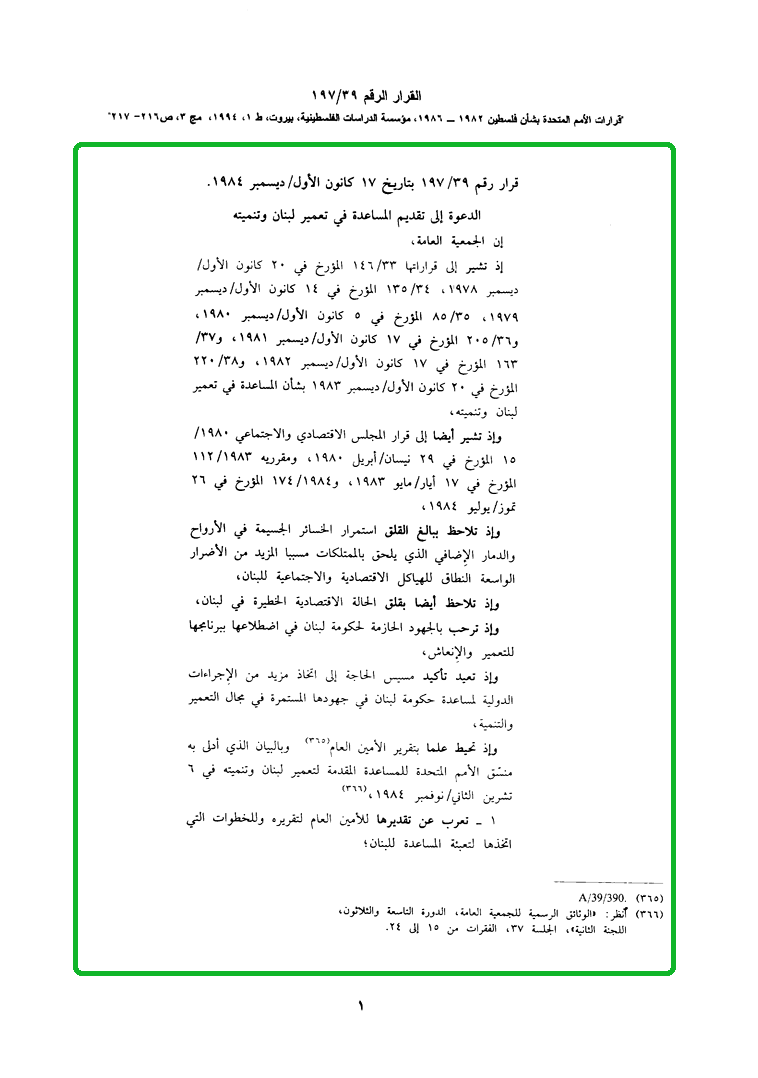 القرار الرقم ١٩٧/٣٩
"قرارات الأمم المتحدة بشأن فلسطين ١٩٨٢ ــ ١٩٨٦، مؤسسة الدراسات الفلسطينية، بيروت، ط ١، ١٩٩٤، مج ٣، ص٢١٦- ٢١٧"
قرار رقم ١٩٧/٣٩ بتاريخ ١٧ كانون الأول/ديسمبر ١٩٨٤.
الدعوة إلى تقديم المساعدة في تعمير لبنان وتنميته
إن الجمعية العامة،
إذ تشير إلى قراراتها ١٤٦/٣٣ المؤرخ في ٢٠ كانون الأول/
ديسمبر ١٩٧٨، ١٣٥/٣٤ المؤرخ في ١٤ كانون الأول/ديسمبر
١٩٧٩، ٨٥/٣٥ المؤرخ في ٥ كانون الأول/ديسمبر ١٩٨٠،
و٢٠٥/٣٦ المؤرخ في ١٧ كانون الأول/ديسمبر ١٩٨١، و٣٧/
١٦٣ المؤرخ في ١٧ كانون الأول/ديسمبر ١٩٨٢، و٢٢٠/٣٨
المؤرخ في ٢٠ كانون الأول/ديسمبر ١٩٨٣ بشأن المساعدة في تعمير
لبنان وتنميته،
وإذ تشير أيضا إلى قرار المجلس الاقتصادي والاجتماعي ١٩٨٠/
١٥ المؤرخ في ٢٩ نيسان/أبريل ١٩٨٠، ومقرريه ١١٢/١٩٨٣
المؤرخ في ١٧ أيار/مايو ١٩٨٣، و١٧٤/١٩٨٤ المؤرخ في ٢٦
تموز/يوليو ١٩٨٤،
وإذ تلاحظ ببالغ القلق استمرار الخسائر الجسيمة في الأرواح
والدمار الإضافي الذي يلحق بالممتلكات مسببا المزيد من الأضرار
الواسعة النطاق للهياكل الاقتصادية والاجتماعية للبنان،
وإذ تلاحظ أيضا بقلق الحالة الاقتصادية الخطيرة في لبنان،
وإذ ترحب بالجهود الحازمة لحكومة لبنان في اضطلاعها ببرنامجها
للتعمير والإنعاش،
وإذ تعيد تأكيد مسيس الحاجة إلى اتخاذ مزيد من الإجراءات
الدولية لمساعدة حكومة لبنان في جهودها المستمرة في مجال التعمير
والتنمية،
وإذ تحيط علما بتقرير الأمين العام(٣٦٥) وبالبيان الذي أدلى به
منسّق الأمم المتحدة للمساعدة المقدمة لتعمير لبنان وتنميته في ٦
تشرين الثاني/نوفمبر ١٩٨٤،(٣٦٦)
١ ــ تعرب عن تقديرها للأمين العام لتقريره وللخطوات التي
اتخذها لتعبئة المساعدة للبنان؛
(٣٦٥) A/39/390.
(٣٦٦) أنظر: «الوثائق الرسمية للجمعية العامة، الدورة التاسعة والثلاثون،
اللجنة الثانية»، الجلسة ٣٧، الفقرات من ١٥ إلى ٢٤.
١